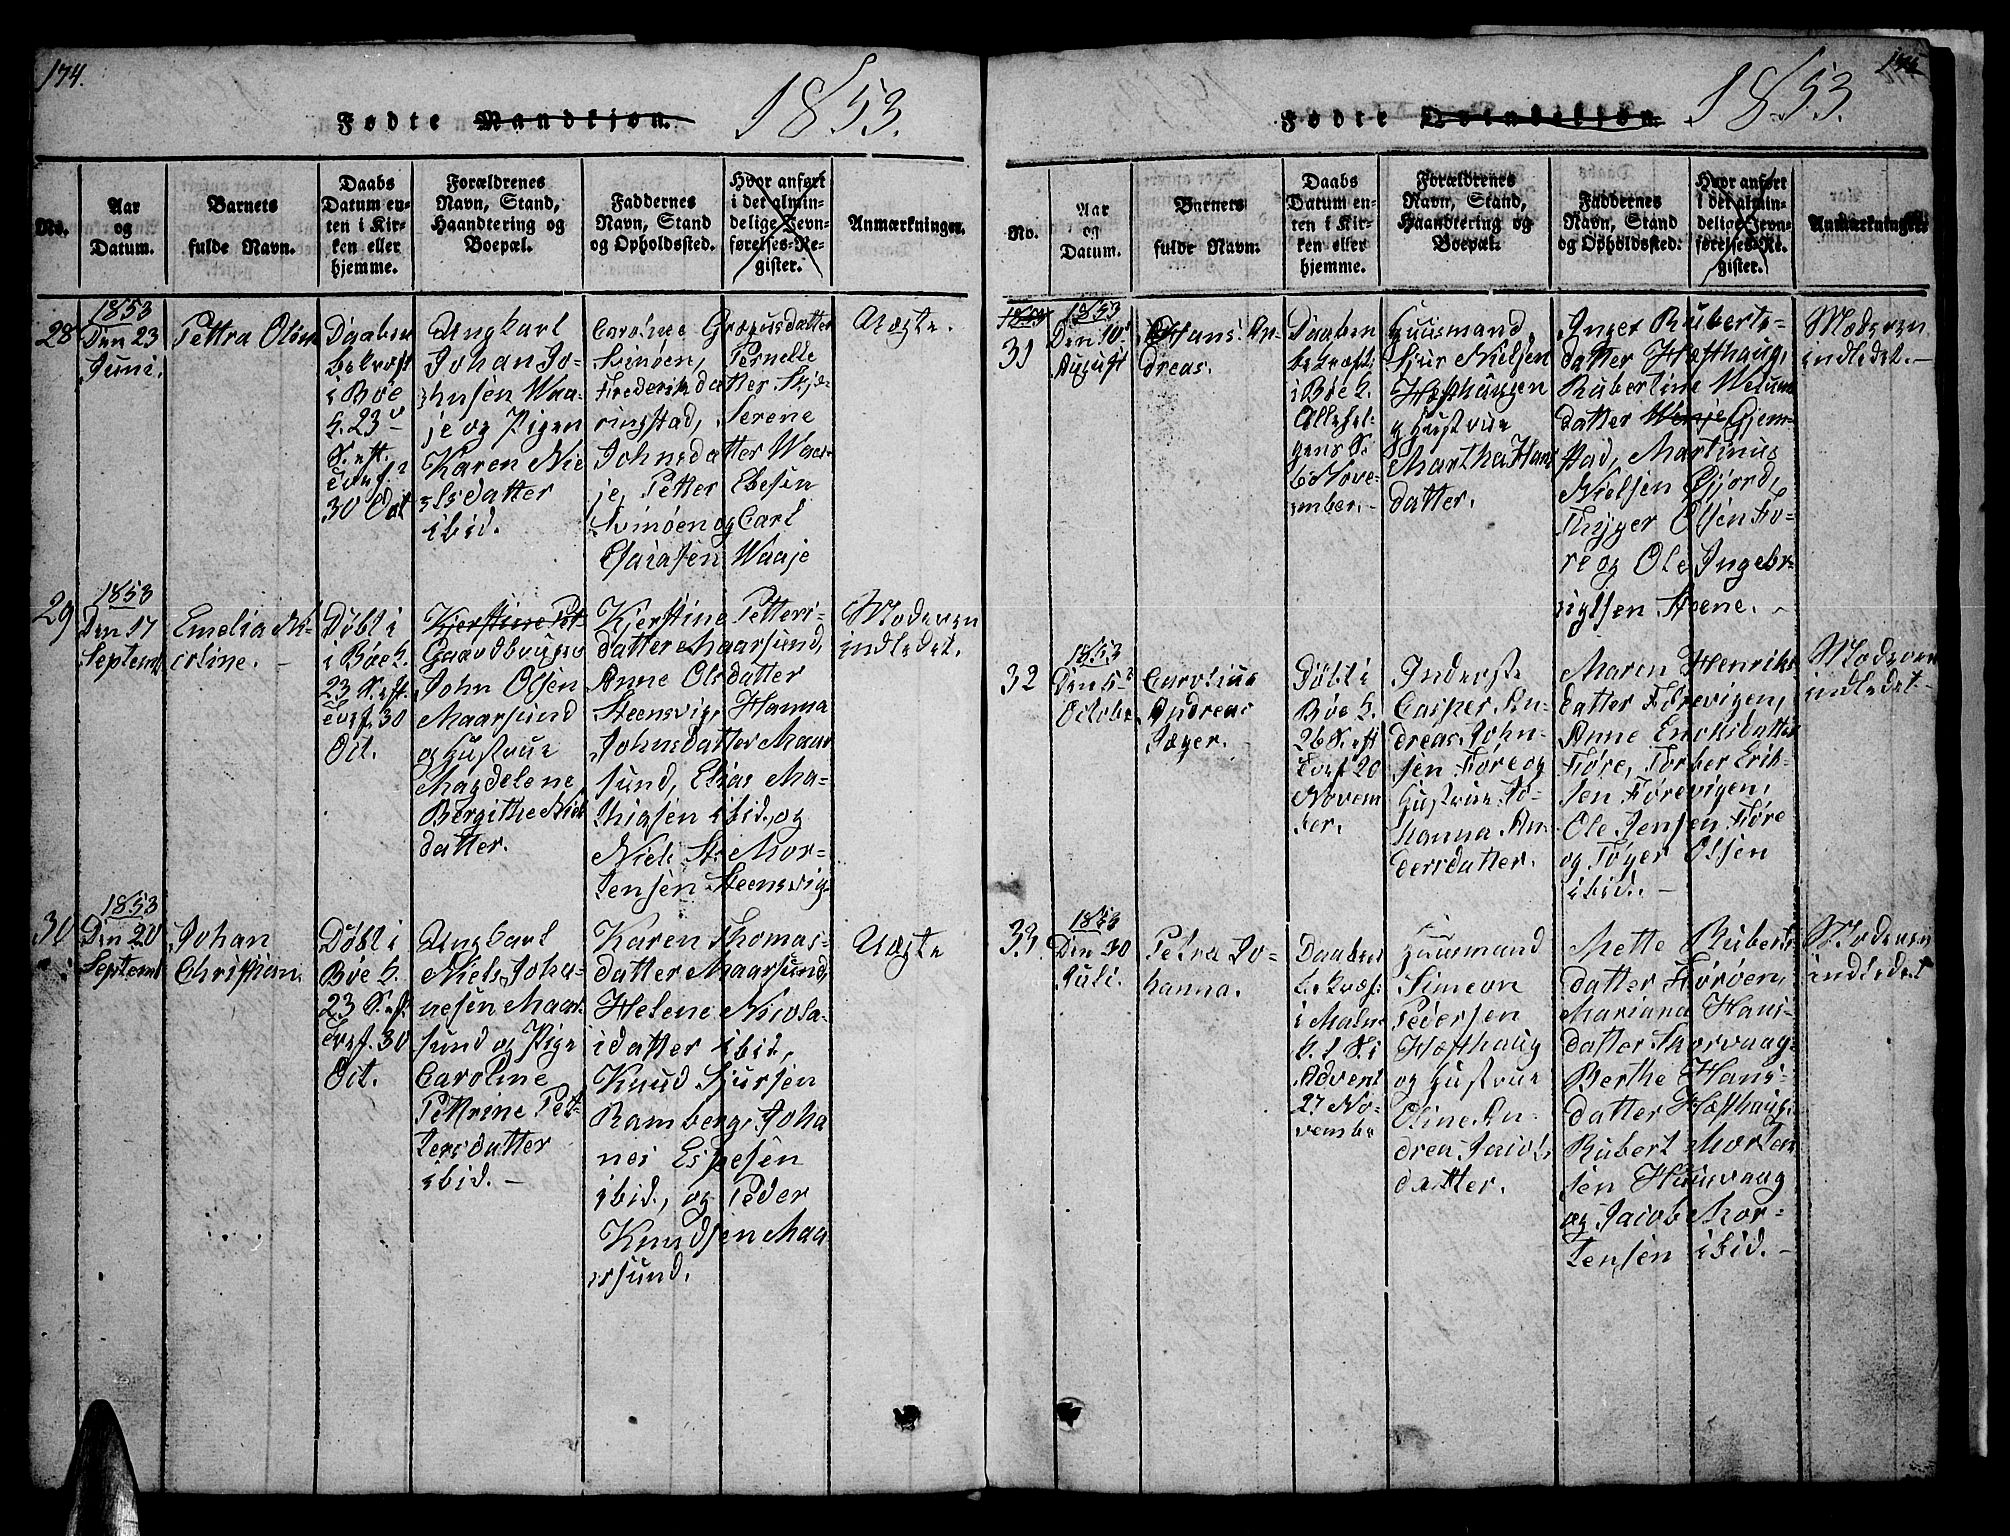 174.
Fødte Mandkjøn. 1853.
No.
Aar
og
Datum.
Barnets
fulde Navn.
Daabs
Datum en-
ten i Kir-
ken eller
hjemme.
Forældrenes
Navn, Stand,
Haandtering og
Boepæl.
Faddernes
Navn, Stand
og Opholdssted.
Hvor anført
i det almin-
delige Jevn-
førelses-Re-
gister.
Anmærkninger.
28
1853
Den 23
Juni.
Pettra Oline
Daaben
bekræft
i Bøe
K. 23
S. eft.
30 Oct
Ungkarl
Johan Jo-
hnsen Waa-
je og Pigen
Karen Nie
lsdatter
ibid.
Caroline Grægusdatter
Svinøen, Pernelle
Frederiksdatter Skjæ-
ringstad, Serene
Johnsdatter Waa-
je, Petter Ebesen
Svinøen og Carl
Esaiasen Waaje
Uægte.
29
1853
Den 17
Septemb
Emelia Ni-
coline.
Døbt i
i Bøe K.
23 S. eft.
30
Oct.
Kjerstine Pet
Gaardbruger
John Olsen
Maarsund
og Hustrue
Magdelene
Bergithe Niels
datter.
Kjerstine Petters-
datter Maarsund,
Anne Olsdatter
Steensvig, Hanna
Johnsdatter Maar
sund, Elias Ma-
thiasen ibid., og
Niels St. Mor-
tensen Steensvig
Moderen
indledet.
30
1853
Den 20
Septemb
Johan
Christian.
Døbt i
Bøe K.
23 S. eft
30
Oct.
Ungkarl
Niels Joha-
nesen Maar
sund og Pige
Caroline
Pettrine Pet-
tersdatter
ibid.
Karen Thomas-
datter Maarsund,
Helene Nicola-
idatter ibid,
Knud Sjursen
Ramberg, Joha
nes Espesen
ibid., og Peder
Knudsen Maa
rsund.
Uægte
Fødte Qvindekjøn. 1853.
No.
Aar
og
Datum.
Barnets
fulde Navn.
Daabs
Datum en-
ten i Kir-
ken eller
hjemme.
Forældrenes
Navn, Stand,
Haandtering og
Boepæl.
Faddernes
Navn, Stand
og Opholdssted.
Hvor anført
i det almin-
delige Jevn-
førelses-Re-
gister.
Anmærkninger.
31
1853
Den 10
August
Hans An-
dreas.
Daaben
bekræft.
i Bøe K.
Allehel-
gens S.
6 Nove-
mber.
Huusmand
Sjur Nielsen
Hæsthaugen
og Hustrue
Martha Hans
datter.
Inger Ruberts-
datter Hæsthaug,
Rubertine
datter Wenje Gjem-
stad, Martinus
Nielsen Øjord,
Thyger Olsen Fø-
re og Ole Ingebr-
igtsen Steene.
Moderen
indledet.
32
1853
Den 5
October
Carolius
Andreas
Jæger.
Døbt i
Bøe K.
26 S. eft
20
Novem
ber.
Inderst
Casper An-
dreas John-
sen Føre og
Hustrue Jo-
hanna An-
dersdatter.
Maren Henriks-
datter Førevigen,
Anne Enoksdatter
Føre, Torber Erik-
sen Førevigen,
Ole Jensen Føre
og Tøger Olsen
ibid.
Moderen
indledet
33.
1853
Den 30
Juli.
Petra Jo-
hanna.
Daaben
bekræf.
i Maln.
K. 1 S. i
Advent
27 No-
vembe
Huusmand
Simeon
Pedersen
Hæsthaug
og Hustrue
Oline An-
drea Jacobs
datter.
Mette Ruberts
datter Førøen,
Mariana Hans-
datter Skorvaag
Berthe Hans-
datter Hæsthaug,
Rubert Morten
sen Huusvaag
og Jacob Mor-
tensen ibid.
Moderen
indledet